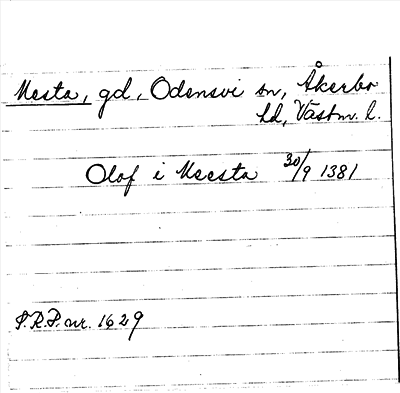 Mesta, gd, Odensvi sn, Åkerbo
hd, Västm. l.
Olof i Meesta 30/9 1381
S.R.P. nr. 1629